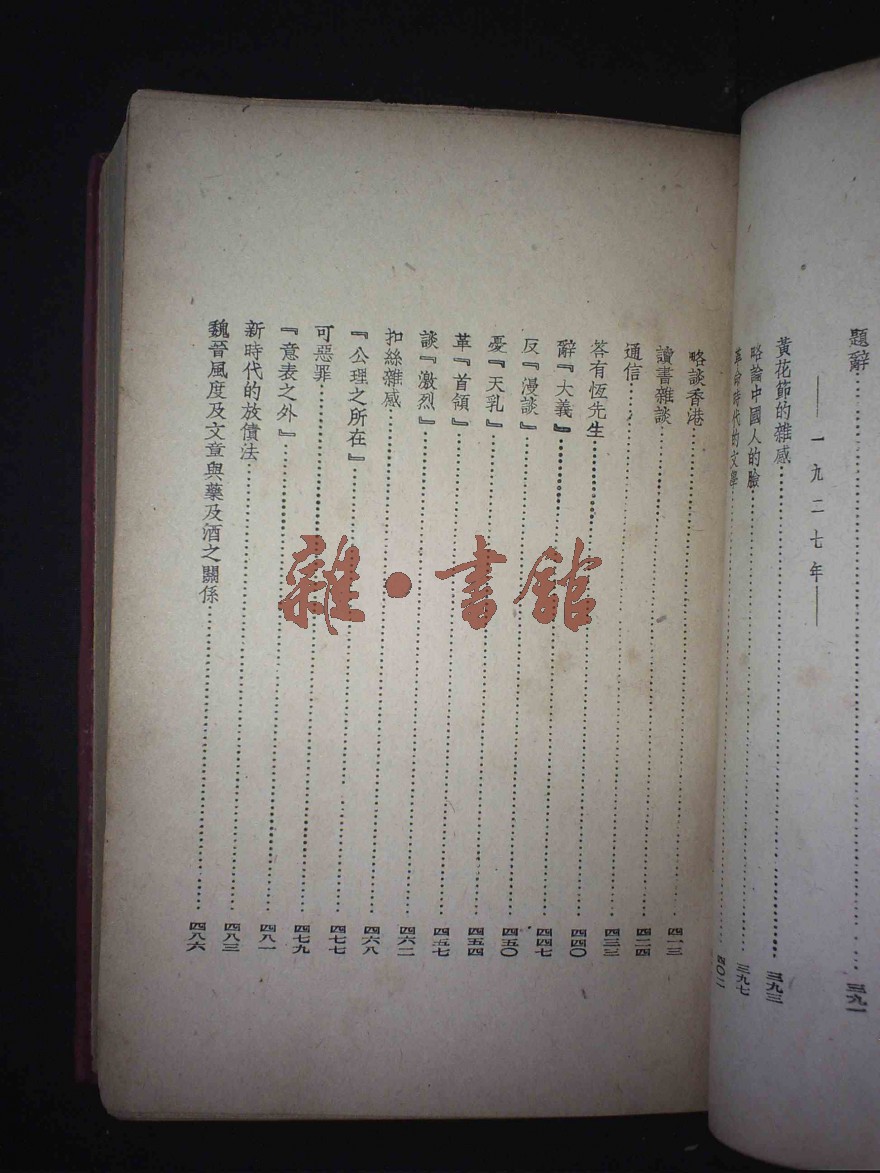 題辭……三九一
——一九二七年——
黃花節的雜感……三九三
略論中國人的臉……三九七
革命時代的文學……四〇二
略談香港……四一三
讀書雜談……四二四
通信……四三三
答有恆先生……四四〇
辭『大義』……四四七
反『漫談』……四五〇
憂『天乳』……四五四
革『首領』……四五七
談『激烈』……四六二
扣絲雜感……四六八
『公理之所在』……四七七
可惡罪……四七九
『意表之外』……四八一
新時代的放債法……四八三
魏晉風度及文章與藥及酒之關係……四八六
雜·書館